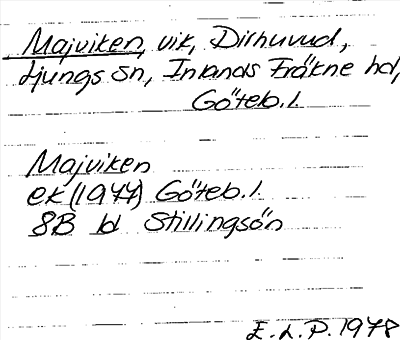 Majviken, vik, Dirhuvud,
Ljungs sn, Inlands Fräkne hd,
Göteb.l.
Majviken
ek (1977) Göteb.l.
8B bl Stillingsön
E.L.P. 1978